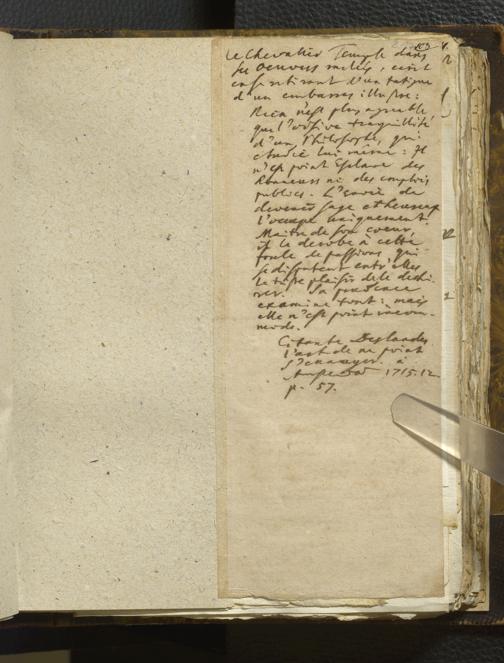 Le Chevalier Temple dans
ses Oeuvres melés, ecrit
en se retirant d'un fatigue
d'un embarras illustre:
Rien n'est plus agreable
que l'oisive tranquillité
d'un Philosophe, qui
etudie lui même: Il
n'est point Esclave des
Honneurs ni des emplois
publics. L'envie de
devenir sage et heureux
l'occupe uniquement.
Maitre de son coeur,
il le derobe à cette
foule de passions, qui
se disputent entr'elles
le triste plaisir de le dechi-
rer. Sa prudence
examine tout: mais
elle n'est point incom-
mode.
Citante Deslandes
l'art de ne point
s'ennuyer. à
Amsterdam 1715.12
p. 57.